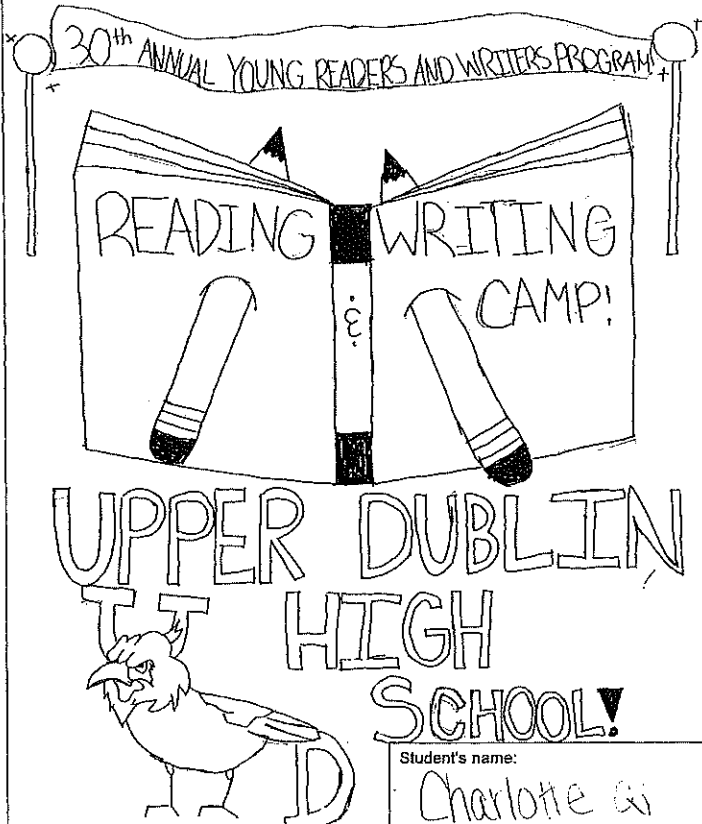 30th ANNUAL YOUNG READERS AND WRITERS PROGRAM
READING & WRITING
CAMP!
UPPER DUBLIN
HIGH
SCHOOL!
U
D
Student's name:
Charlotte